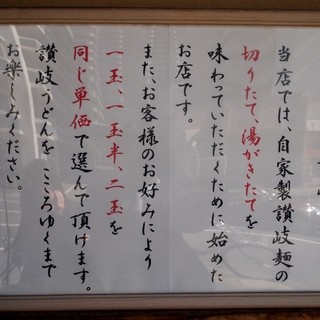 当店では、自家製讃岐麺の
切りたて、湯がきたてを
味わっていただくために始めた
お店です。
また、お客様のお好みにより
一玉、一玉半、二玉を
同じ単価で選んで頂けます。
讃岐うどんを こころゆくまで
お楽しみください。